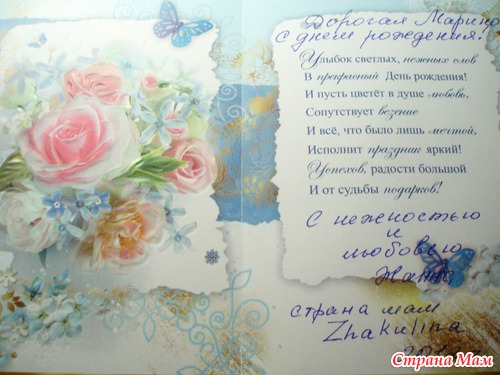 Дорогая Марина
с днем рождения!
Улыбок светлых, нежных слов
В прекрасный День рождения!
И пусть цветёт в душе любовь,
Сопутствует везение
И всё, что было лишь мечтой,
Исполнит праздник яркий!
Успехов, радости большой
И от судьбы подарков!
С нежностью
и
любовью
Жанна
страна мам
Zhakulina
Страна Мам